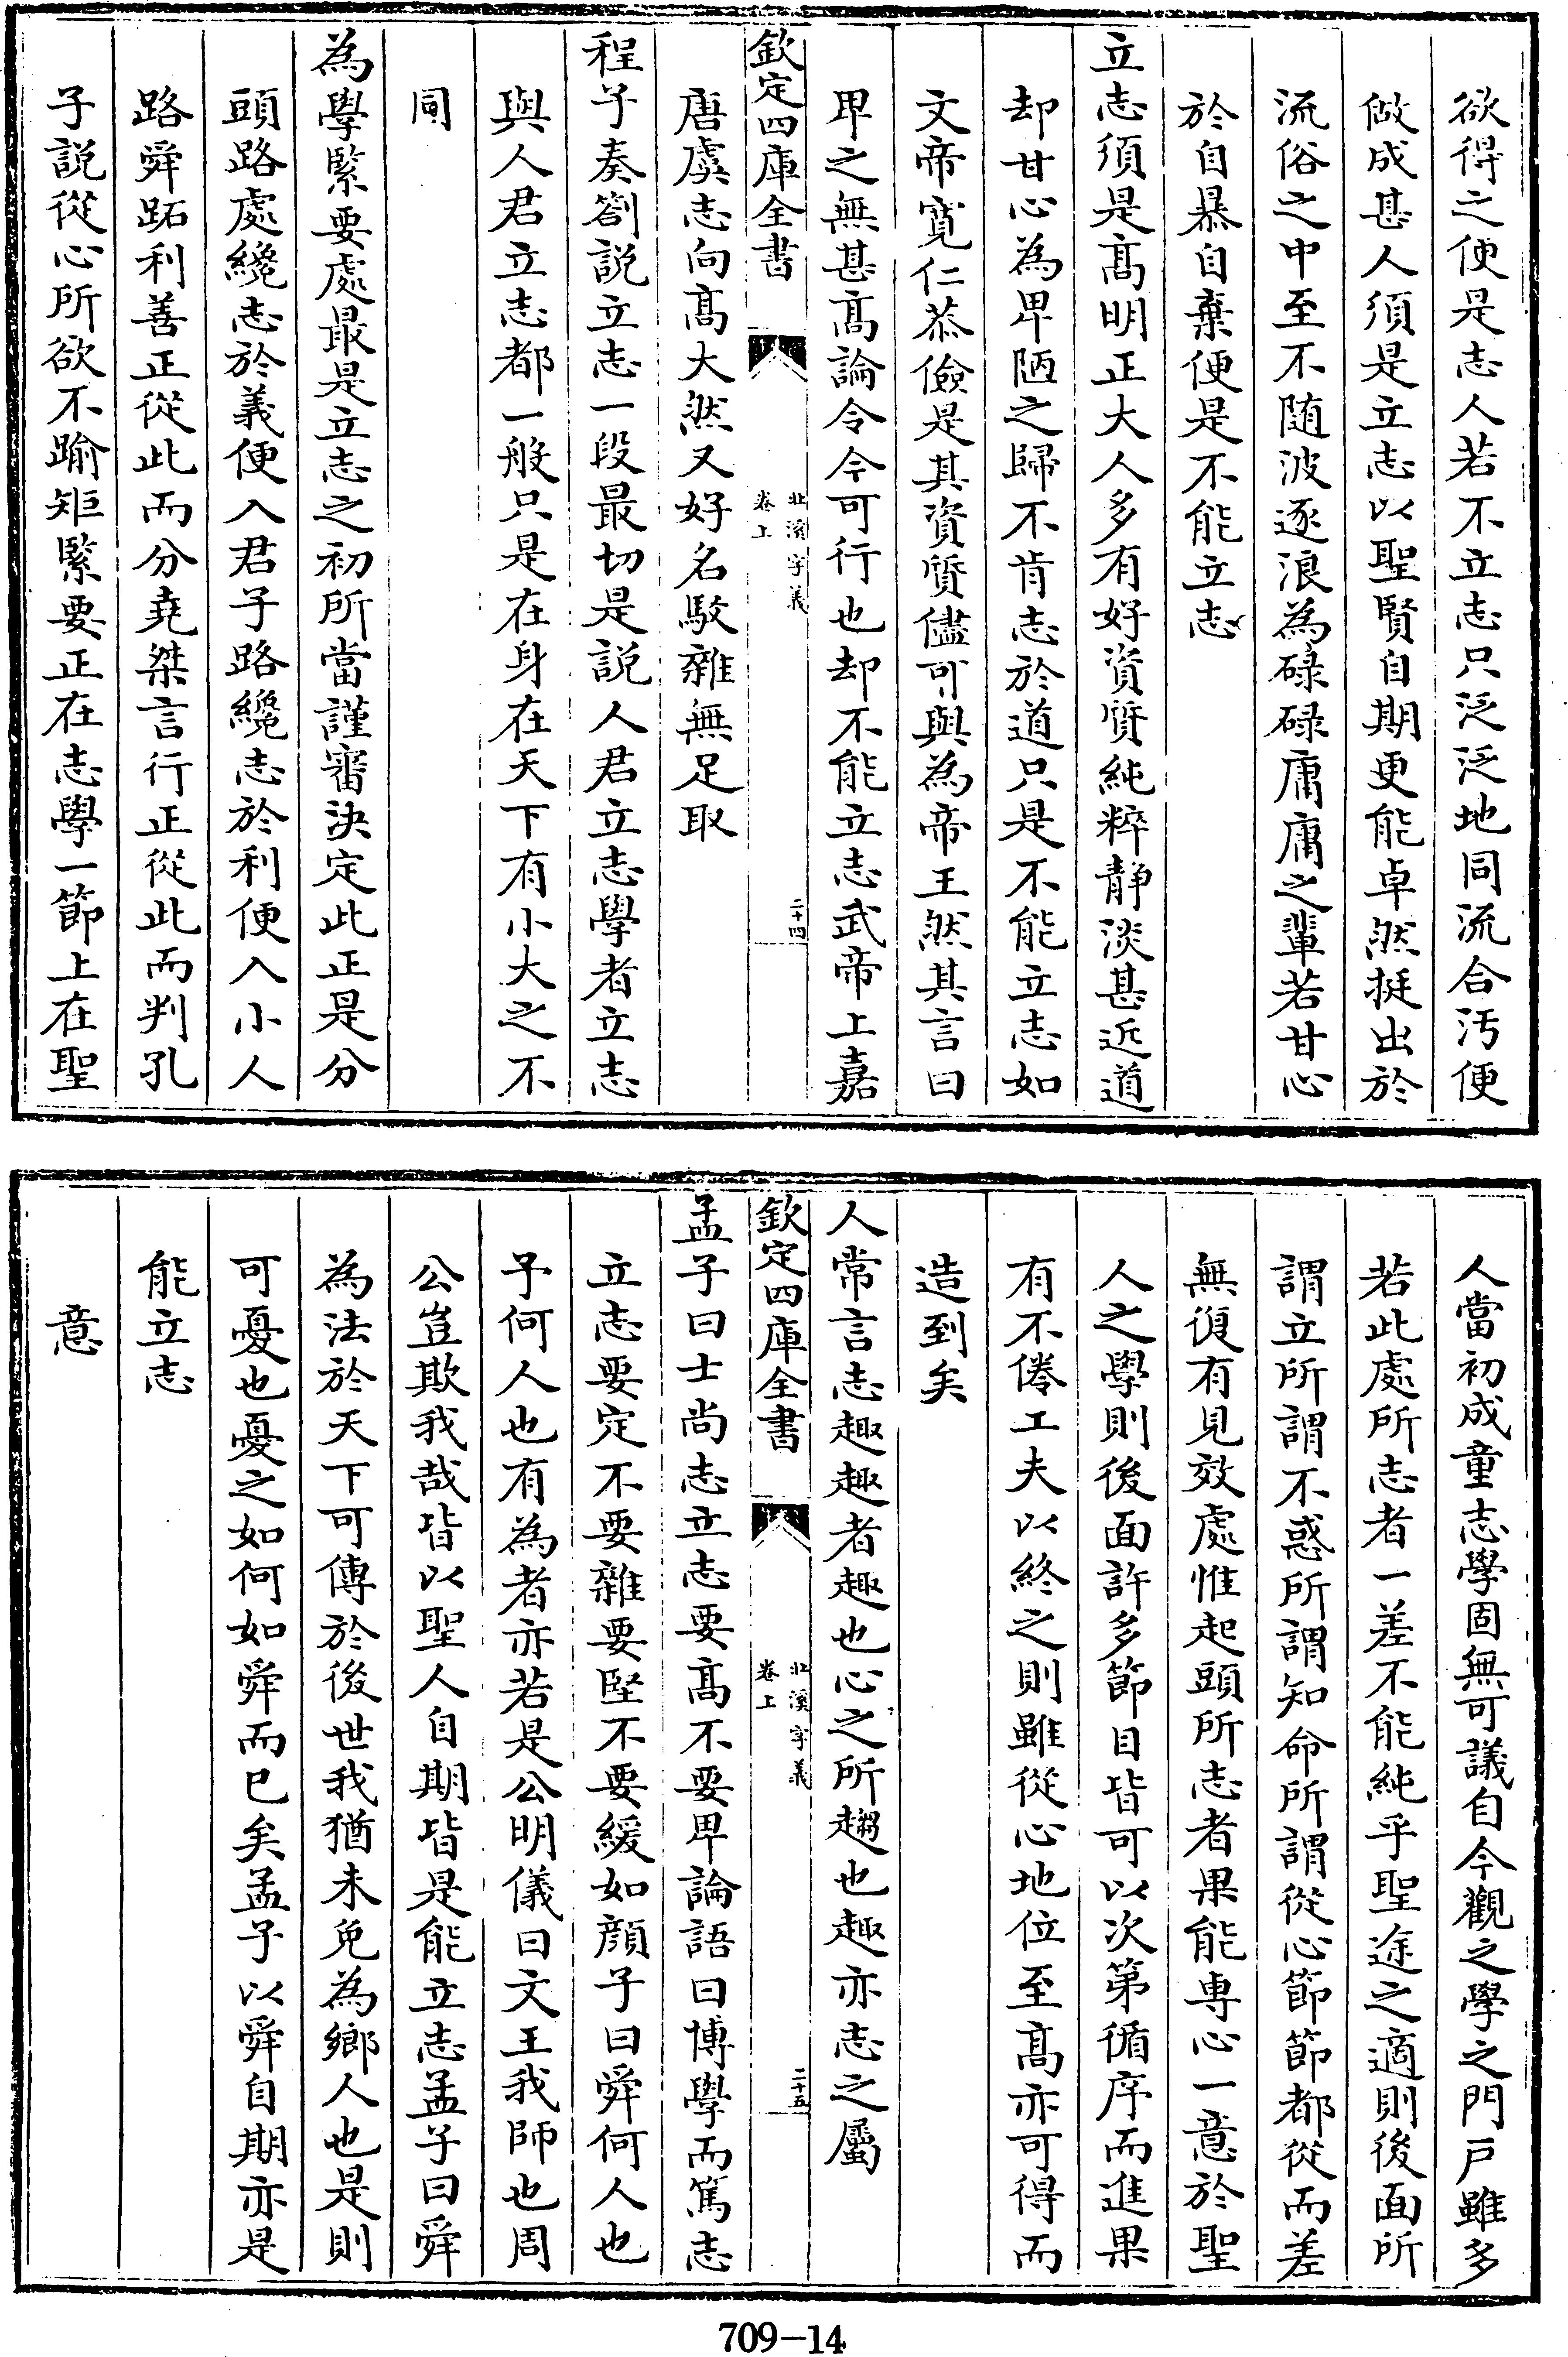 欲得之便是志人若不立志只泛泛地同流合汚便
做成甚人須是立志以聖賢自期更能卓然挺出於
流俗之中至不随波逐浪為碌碌庸庸之輩若甘心
於自暴自棄便是不能立志
立志須是髙明正大人多有好資質純粹静淡甚近道
却甘心為卑陋之歸不肯志於道只是不能立志如
文帝寛仁恭儉是其資質儘可與為帝王然其言曰
卑之無甚髙論令今可行也却不能立志武帝上嘉
欽定四庫全書
北溪字義
卷上
二十四
唐虞志向髙大然又好名駁雜無足取
程子奏劄説立志一段最切是説人君立志學者立志
與人君立志都一般只是在身在天下有小大之不
同
為學緊要處最是立志之初所當謹審決定此正是分
頭路處纔志於義便入君子路纔志於利便入小人
路舜跖利善正從此而分堯桀言行正從此而判孔
子説從心所欲不踰矩緊要正在志學一節上在聖
人當初成童志學固無可議自今觀之學之門戸雖多
若此處所志者一差不能純乎聖途之適則後面所
謂立所謂不惑所謂知命所謂從心節節都從而差
無復有見效處惟起頭所志者果能専心一意於聖
人之學則後面許多節目皆可以次第循序而進果
有不倦工夫以終之則雖從心地位至髙亦可得而
造到矣
人常言志趣趣者趣也心之所趨也趣亦志之屬
欽定四庫全書
北溪字義
卷上
二十五
孟子曰士尚志立志要髙不要卑論語曰博學而篤志
立志要定不要雜要堅不要緩如顔子曰舜何人也
予何人也有為者亦若是公明儀曰文王我師也周
公豈欺我哉皆以聖人自期皆是能立志孟子曰舜
為法於天下可傳於後世我猶未免為鄉人也是則
可憂也憂之如何如舜而已矣孟子以舜自期亦是
能立志
意
709-14